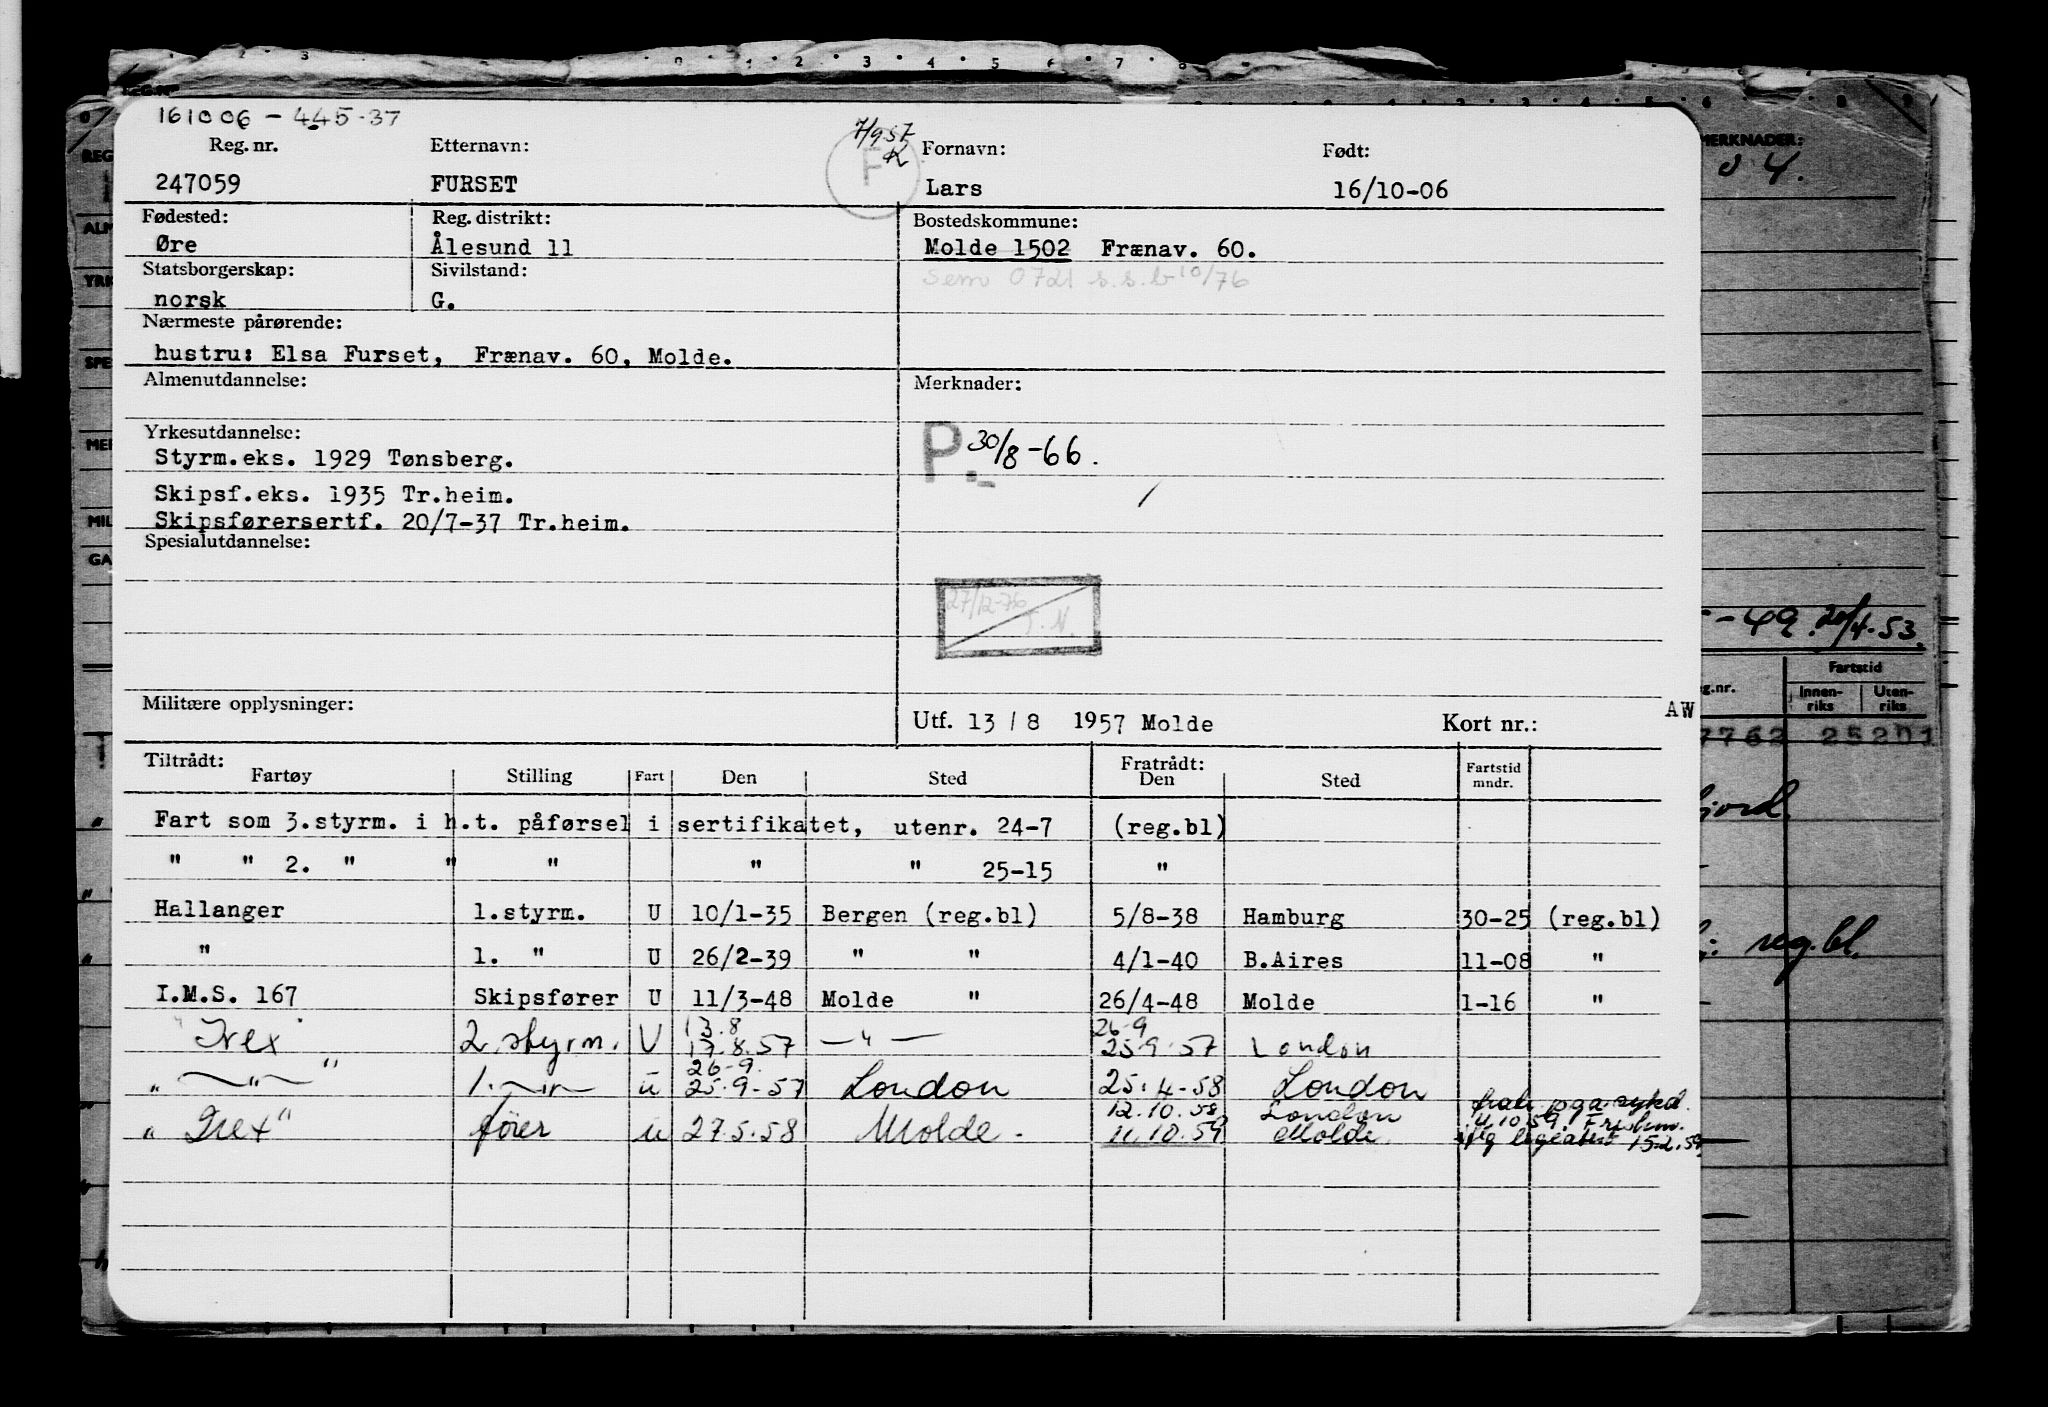 161006 - 445-37
Reg. nr. Etternavn: Fornavn: Født:
7/9 57
K
F
247059 FURSET Lars 16/10-06
Fødested: Reg. distrikt: Bostedskommune:
Øre Ålesund 11 Molde 1502 Frænav. 60.
Statsborgerskap: Sivilstand: Sem 0721 s.s.b 10/76
norsk G.
Nærmeste pårørende:
hustru: Elsa Furset, Frænav. 60, Molde.
Almenutdannelse: Merknader:
Yrkesutdannelse:
P. 30/8-66.
Styrm.eks. 1929 Tønsberg.
Skipsf.eks. 1935 Tr.heim.
Skipsførersertf. 20/7-37 Tr.heim.
Spesialutdannelse:
27/12-76
T.N.
Militære opplysninger: Utf. 13 / 8 1957 Molde Kort nr.: AW
Tiltrådt: Fratrådt:
Fartøy Stilling Fart Den Sted Den Sted Fartstid mndr.
Fart som 3.styrm. i h.t. påførsel i sertifikatet, utenr. 24-7 (reg.bl)
" " 2. " " " " " 25-15 "
Hallanger 1.styrm. U 10/1-35 Bergen (reg.bl) 5/8-38 Hamburg 30-25 (reg.bl)
" 1. " U 26/2-39 " " 4/1-40 B.Aires 11-08 "
I.M.S. 167 Skipsfører U 11/3-48 Molde " 26/4-48 Molde 1-16 "
13.8 26-9
"Trex" 2. styrm. U 17.8.57 — " — 25.9.57 London
26-9.
" — " — " 1. — " — u 25.9-57 London 25.4-58 London
12.10.58 London
"Trex" fører u 27.5.58 Molde. 11.10.59 Molde.
pga. sykd.
11.10.59.
15.2.59
MERKNADER:
4.
-49 20/4-53.
Fartstid
Innen-riks Uten-riks
7762 25201
reg.bl.